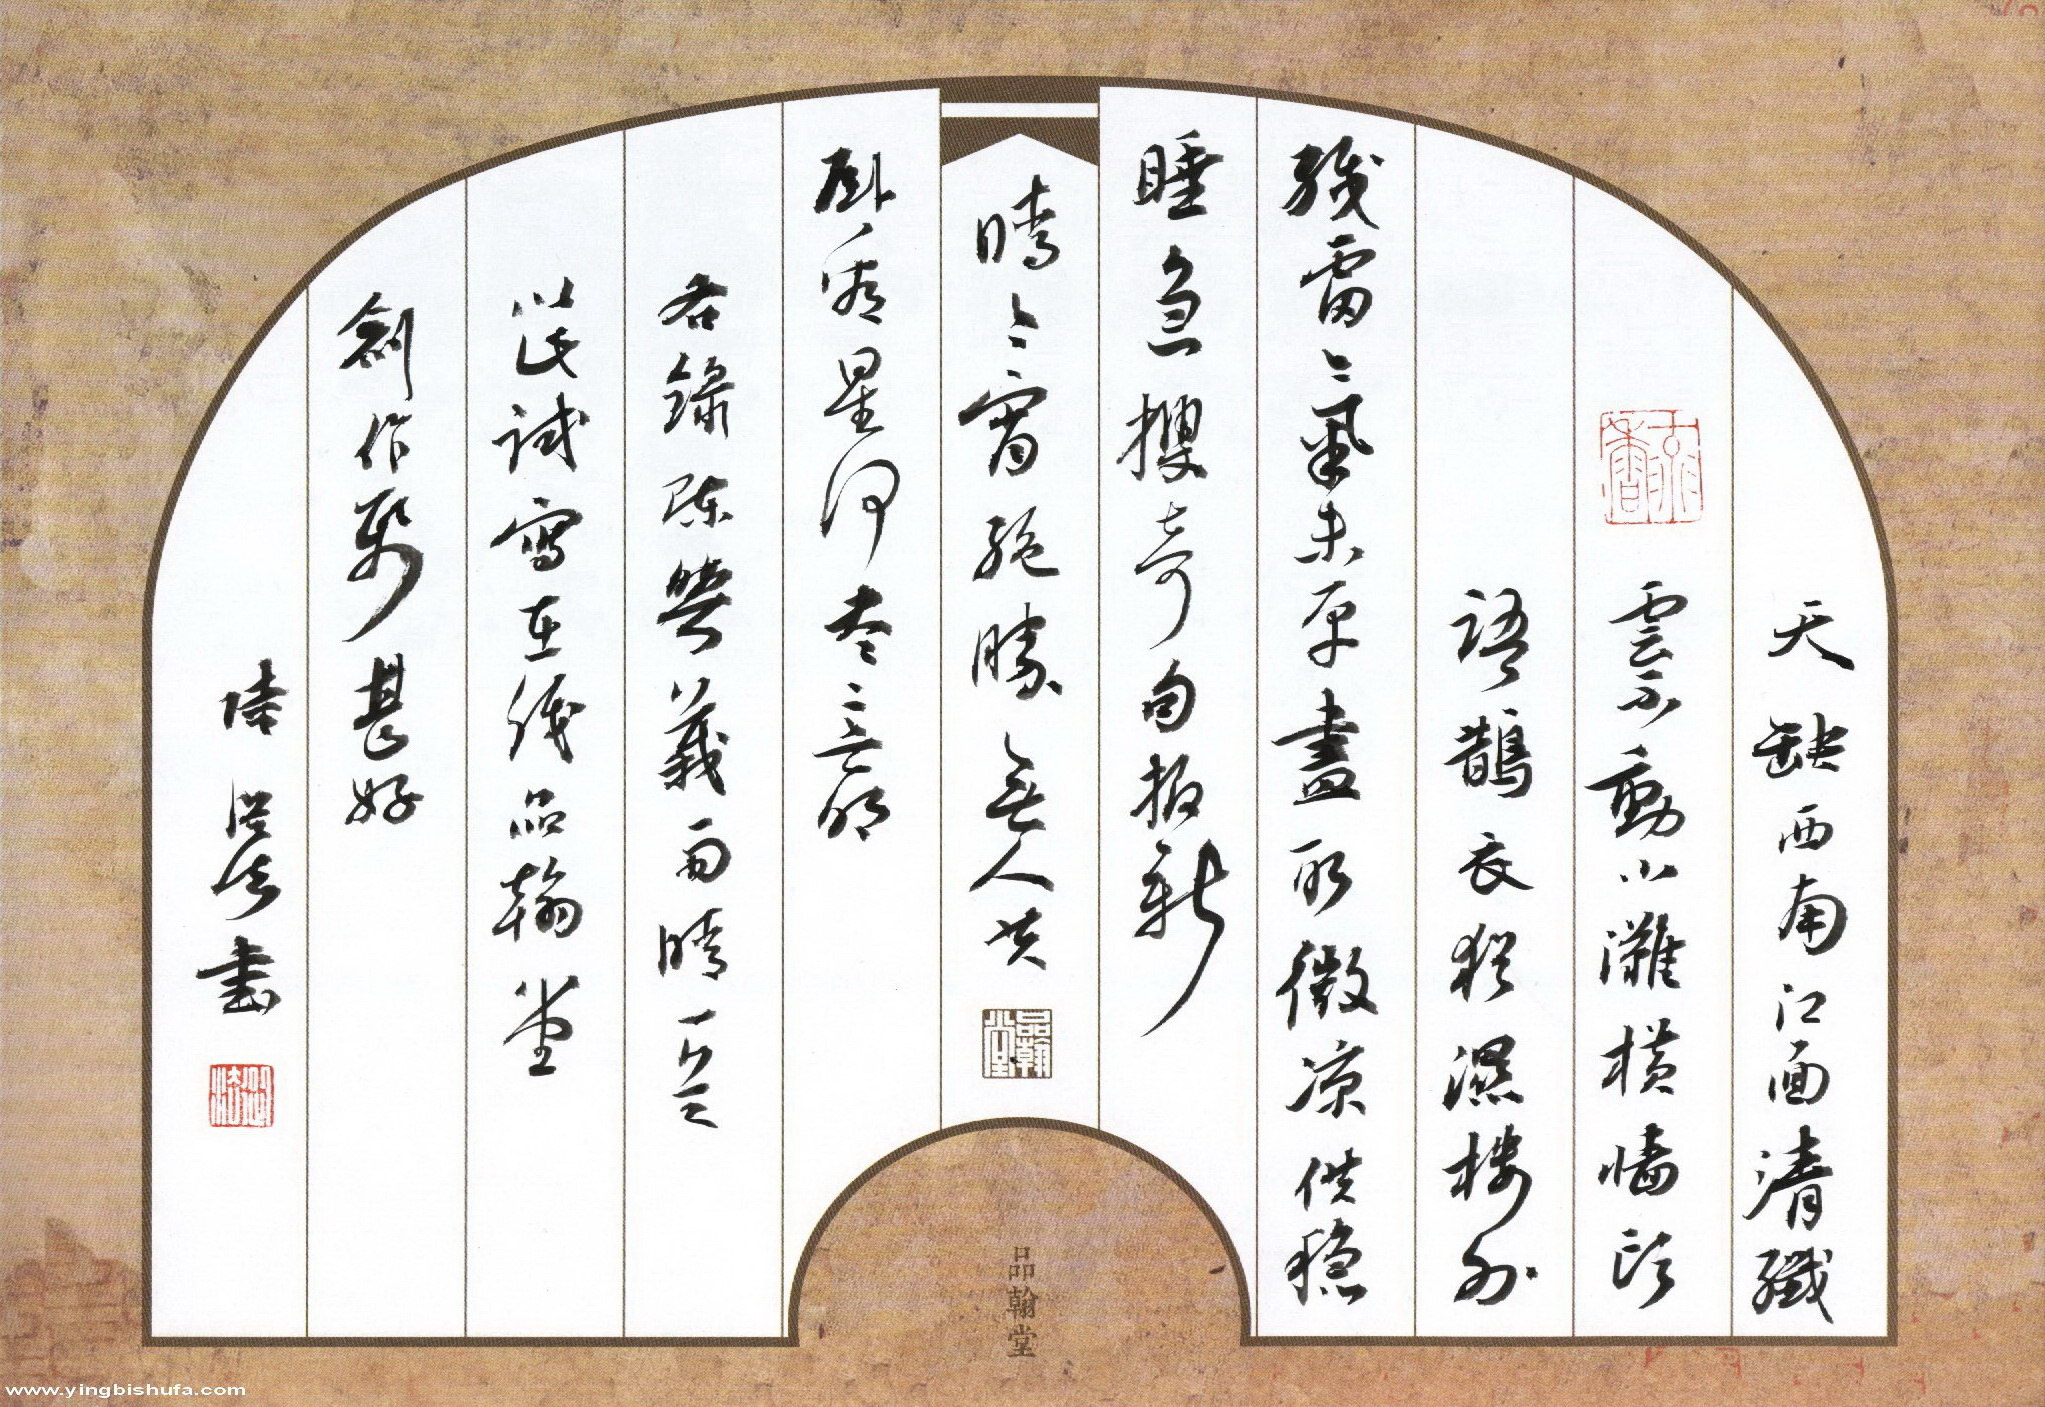 天缺西南江面清纖
雲不動小灘橫牆頭
語鵲衣猶濕樓外
殘雷氣未平盡取微涼供穩
睡急搜奇句報新
晴今宵絕勝無人共
臥看星河盡意明
右錄陈與義雨晴一首
以民誠寫在线品翰堂
劍作 甚好
品翰堂
品翰堂
www.yingbishufa.com